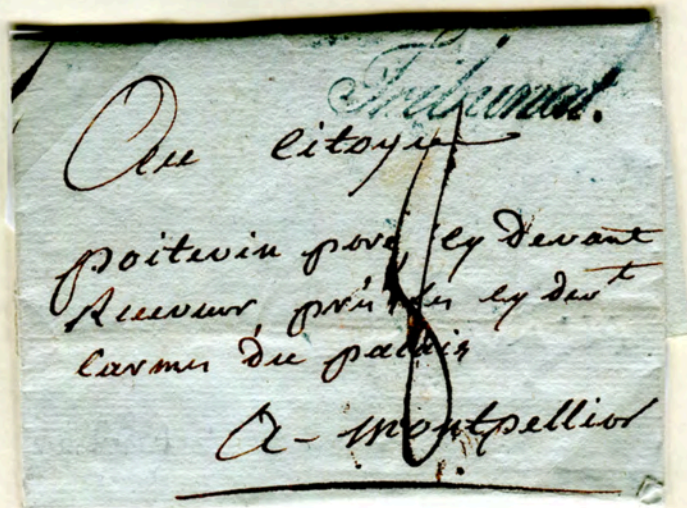 Tribunat.
Au Citoyen
poitevin pere, cy devant
Receveur, près les cy devt
Carmes du palais
A - Montpellier
8